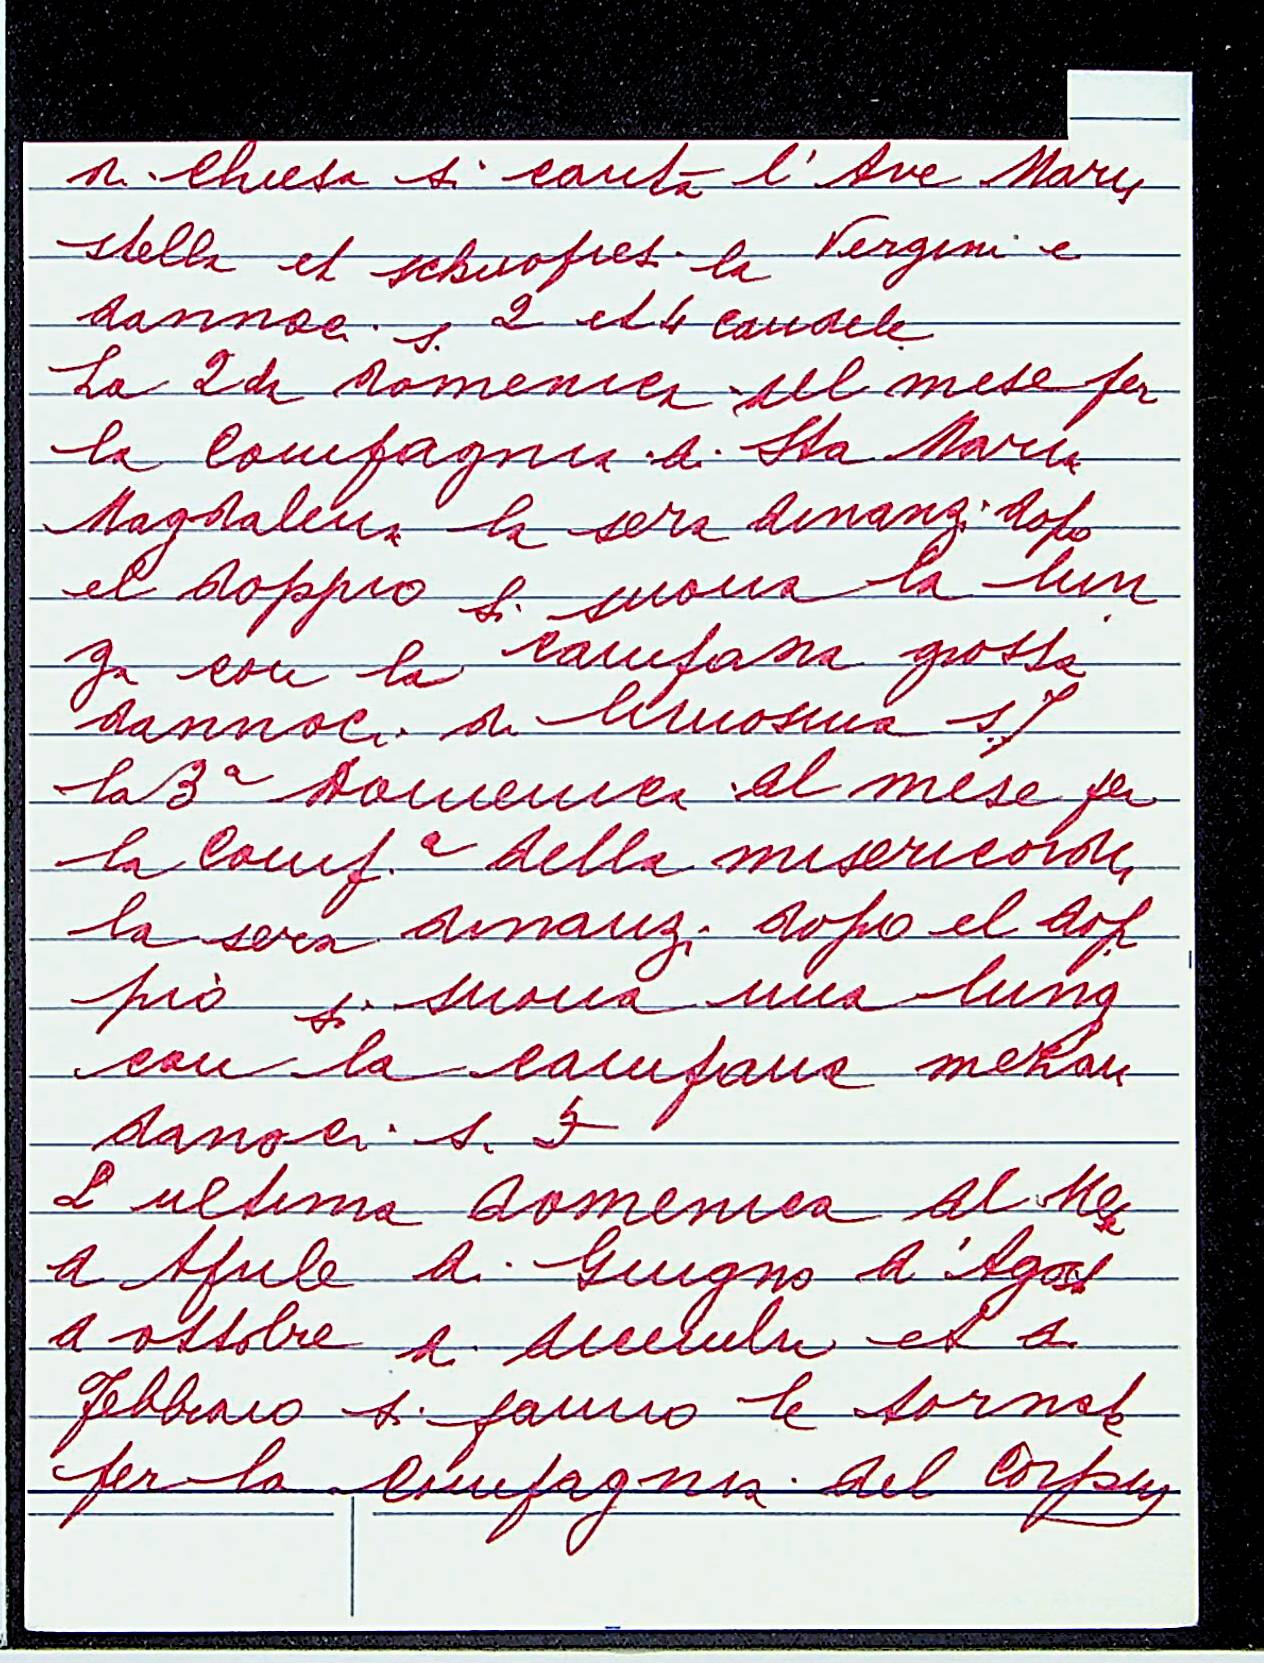 di Chiesa si canta l'Ave Maris
stella et schuopresi la Vergine e
dannoci s. 2 et 4 candele
La 2da domenica del mese per
la Compagnia di Sta Maria
Magdalena la sera dinanzi dopo
el doppio si suona la lun
ga con la campana grossa
dannoci di limosina s. 7
la 3ª Domenica del mese per
la Comp.ª della misericordia
la sera dinanzi dopo el dop
pio si suona una lunga
con la campana mezzana
danoci s. 5
L'ultima domenica del Mese
d Aprile di Giugno d'Agost
d ottobre di dicembre et di
Febbraio si fanno le tornate
per la Compagnia del Corpus